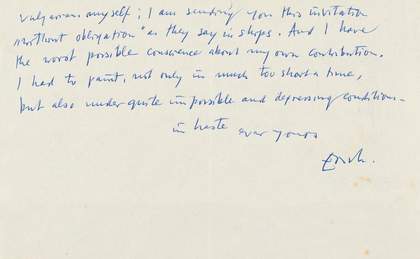 vulgarians myself; I am sending you this invitation
"without obligation" as they say in shops. And I have
the worst possible conscience about my own contribution.
I had to paint, not only in much too short a time,
but also under quite impossible and depressing conditions—
in haste ever yours
Erich.